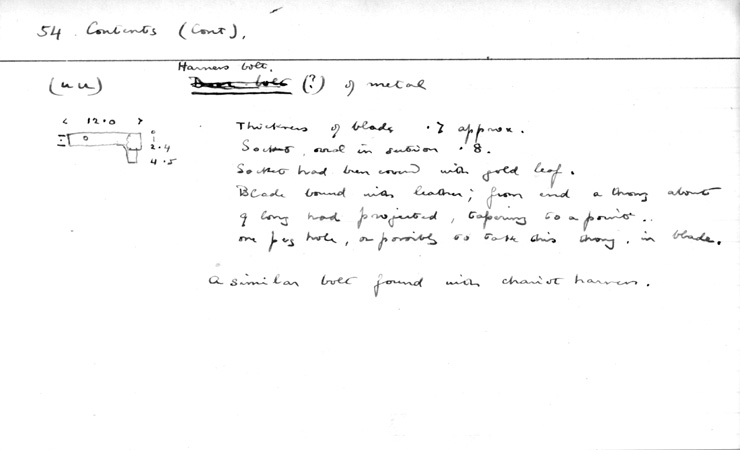 54 Contents (Cont).
Harness bolt.
(uu) Door bolt (?) of metal
12.0
2.4
4.5
Thickness of blade .7 approx.
Socket, oval in section .8.
Socket had been covd with gold leaf.
Blade bound with leather; from end a thong about
9 long had projected, tapering to a point..
one peg hole, or possibly to take this thong, in blade.
A similar bolt found with chariot harness.